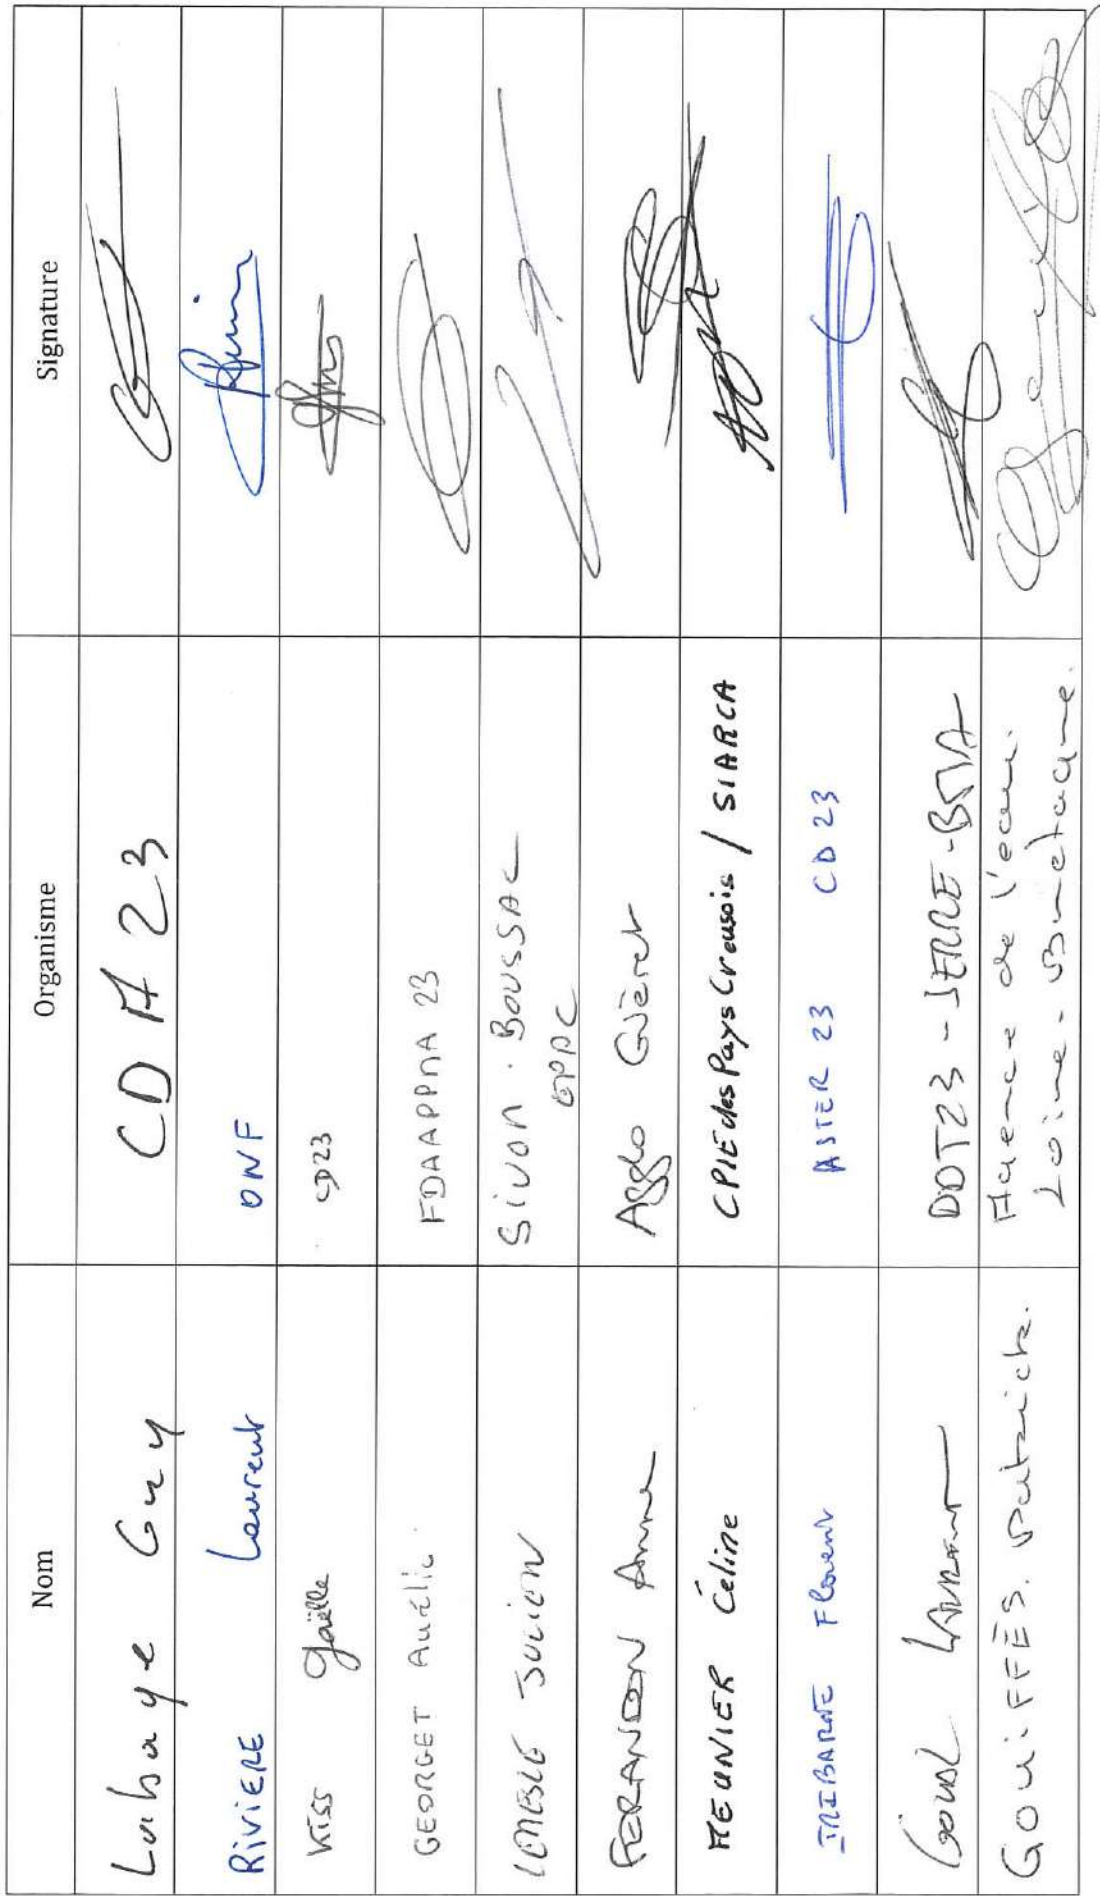 Nom Organisme Signature
Labaye Guy CDA 23
RIVIERE Laurent ONF
KISS Gaëlle CD23
GEORGET Aurélie FDAAPPMA 23
LEMESLE Julien SIVOM . BOUSSAC
Agglo Guéret
FERANDON Anne
MEUNIER Céline CPIE des Pays Creusois / SIARCA
IRIBARNE Florent ASTER 23 CD 23
GOUAL LAURENT DDT23 - SERRE - BMA
GOUIFFÈS. Patrick. Agence de l'eau.
Loire. Bretagne.